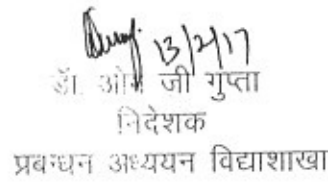 13/2/17
डॉ. ओम जी गुप्ता
निदेशक
प्रबन्धन अध्ययन विद्याशाखा